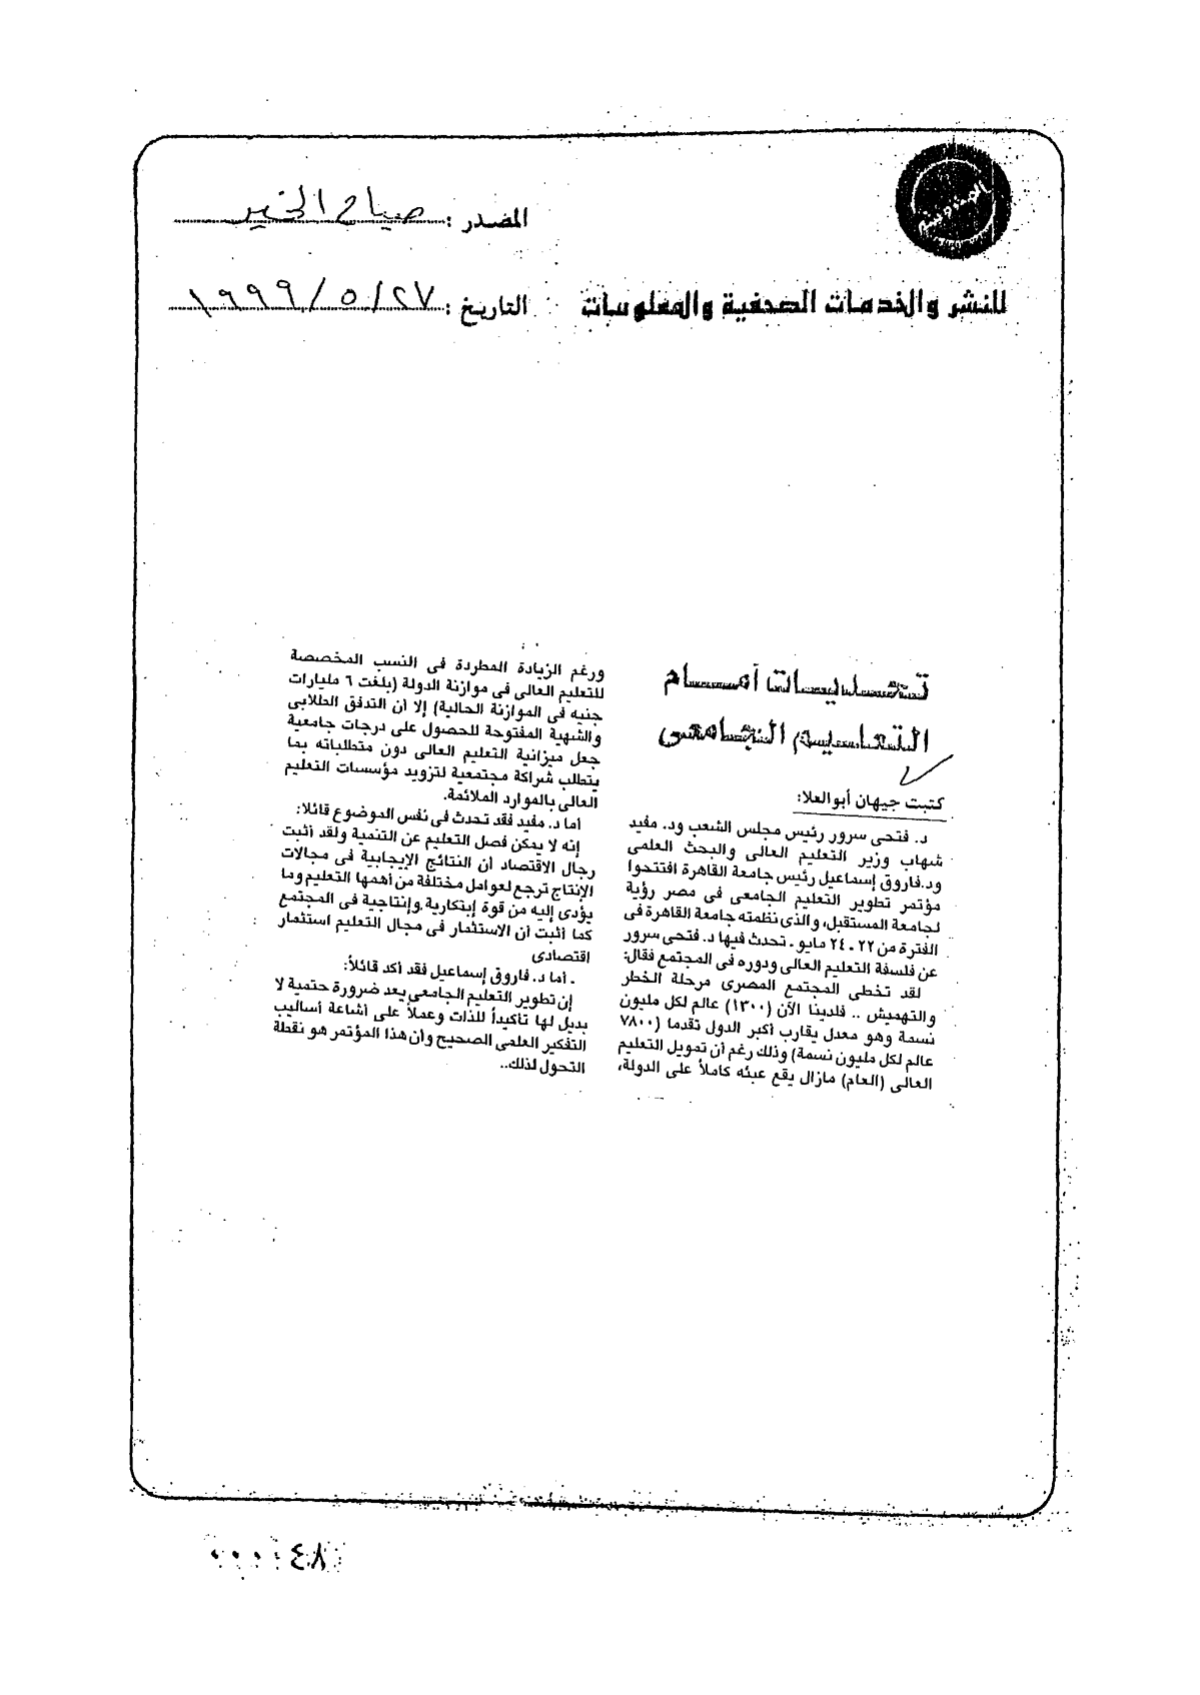 المصدر : صباح الخير
للنشر والخدمات الصحفية والمعلومات
التاريخ : ٢٧/ ٥/ ١٩٩٩
تحديات أمام
التعليم الجامعى
كتبت جيهان أبوالعلا:
د. فتحى سرور رئيس مجلس الشعب ود. مفيد
شهاب وزير التعليم العالى والبحث العلمى
ود.فاروق إسماعيل رئيس جامعة القاهرة افتتحوا
مؤتمر تطوير التعليم الجامعى فى مصر رؤية
لجامعة المستقبل، والذى نظمته جامعة القاهرة فى
الفترة من ٢٢ ـ ٢٤ مايو ـ تحدث فيها د. فتحى سرور
عن فلسفة التعليم العالى ودوره فى المجتمع فقال:
لقد تخطى المجتمع المصرى مرحلة الخطر
والتهميش .. فلدينا الآن (١٣٠٠) عالم لكل مليون
نسمة وهو معدل يقارب أكبر الدول تقدما (٧٨٠٠
عالم لكل مليون نسمة) وذلك رغم أن تمويل التعليم
العالى (العام) مازال يقع عبئه كاملاً على الدولة،
ورغم الزيادة المطردة فى النسب المخصصة
للتعليم العالى فى موازنة الدولة (بلغت ٦ مليارات
جنيه فى الموازنة الحالية) إلا أن التدفق الطلابى
والشهية المفتوحة للحصول على درجات جامعية
جعل ميزانية التعليم العالى دون متطلباته بما
يتطلب شراكة مجتمعية لتزويد مؤسسات التعليم
العالى بالموارد الملائمة.
أما د. مفيد فقد تحدث فى نفس الموضوع قائلا:
إنه لا يمكن فصل التعليم عن التنمية ولقد أثبت
رجال الاقتصاد أن النتائج الإيجابية فى مجالات
الإنتاج ترجع لعوامل مختلفة من أهمها التعليم وما
يؤدى إليه من قوة إبتكارية وإنتاجية فى المجتمع
كما أثبت أن الاستثمار فى مجال التعليم استثمار
اقتصادى
ـ أما د. فاروق إسماعيل فقد أكد قائلاً:
إن تطوير التعليم الجامعى يعد ضرورة حتمية لا
بديل لها تأكيداً للذات وعملاً على أشاعة أساليب
التفكير العلمى الصحيح وأن هذا المؤتمر هو نقطة
التحول لذلك..
٠٠٠٠٤٨